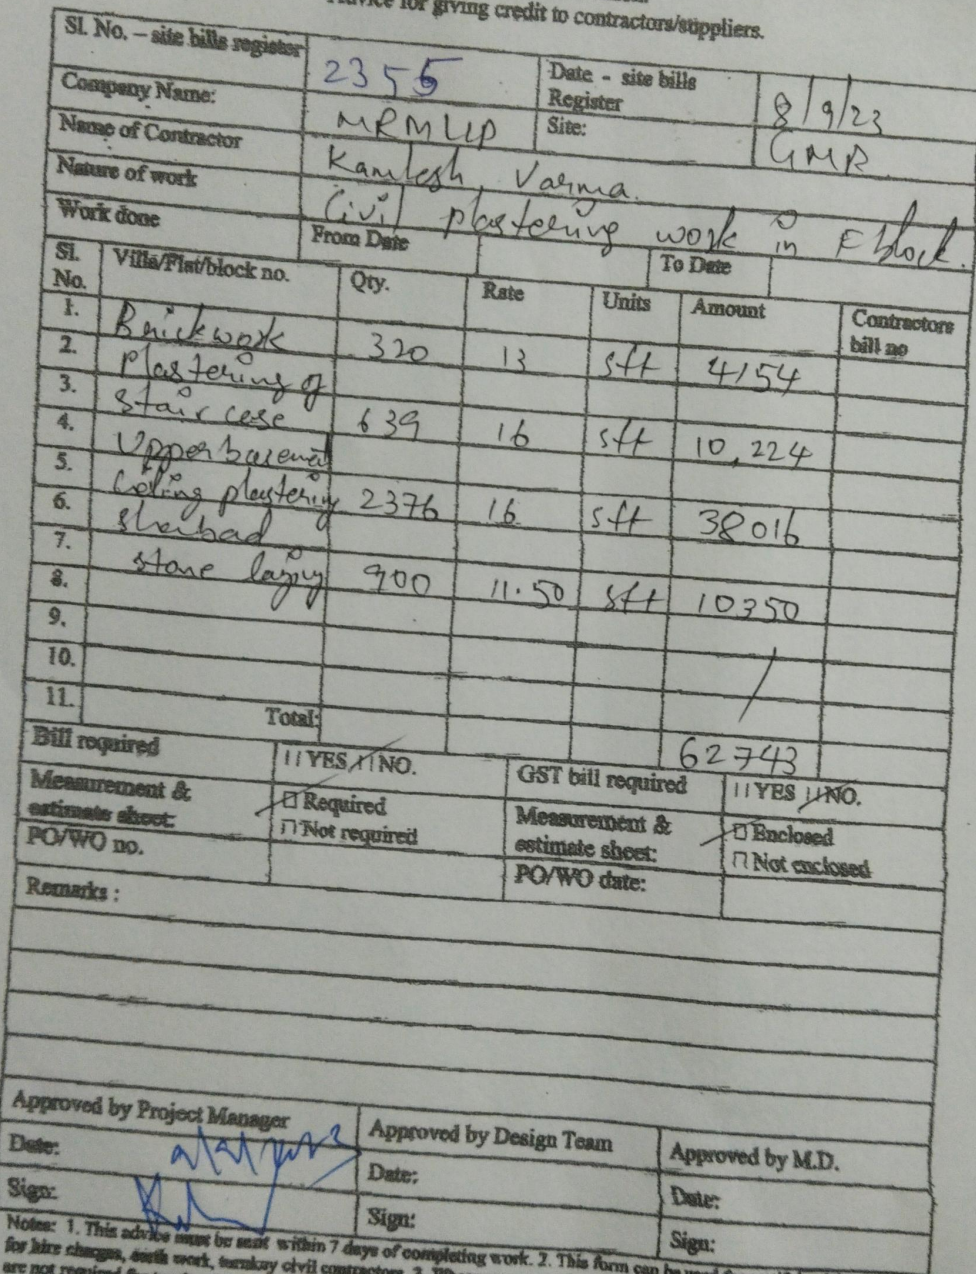 for giving credit to contractors/suppliers.
Sl. No. – site bills register 2355 Date - site bills Register 8/9/23
Company Name: MRMLLP Site: GMR
Name of Contractor Kamlesh Varma.
Nature of work Civil plastering work in F block.
Work done From Date To Date
Sl. No. Villa/Flat/block no. Qty. Rate Units Amount Contractors bill no
1. Brickwork 320 13 sft 4154
2. Plastering of
3. Stair case 639 16 sft 10,224
4. Upper basement
5. Celing plastering 2376 16 sft 38016
6. Shabad
7. stone laying 900 11.50 sft 10350
8.
9.
10.
11.
Total: 62743
Bill required YES NO. GST bill required YES NO.
Measurement & estimate sheet: Required Not required Measurement & estimate sheet: Enclosed Not enclosed
PO/WO no. PO/WO date:
Remarks :
Approved by Project Manager Approved by Design Team Approved by M.D.
Date: Date: Date:
Sign: Sign: Sign:
Notes: 1. This advice must be sent within 7 days of completing work. 2. This form can be
for hire charges, earth work, turnkey civil contractors
are not required